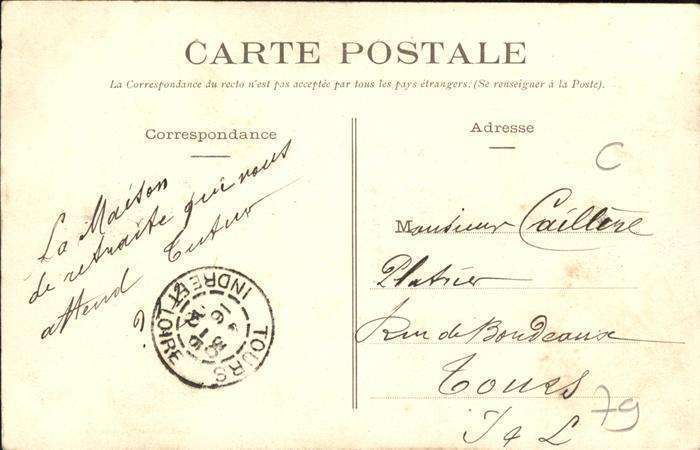 CARTE POSTALE
La Correspondance du recto n'est pas acceptée par tous les pays étrangers. (Se renseigner à la Poste).
Correspondance
La Maison
de retraite qui vous
attend
?
TOURS
INDRE ET LOIRE
Adresse
C
Monsieur Caillère
Platrier
Rue de Bordeaux
Tours
I & L
79